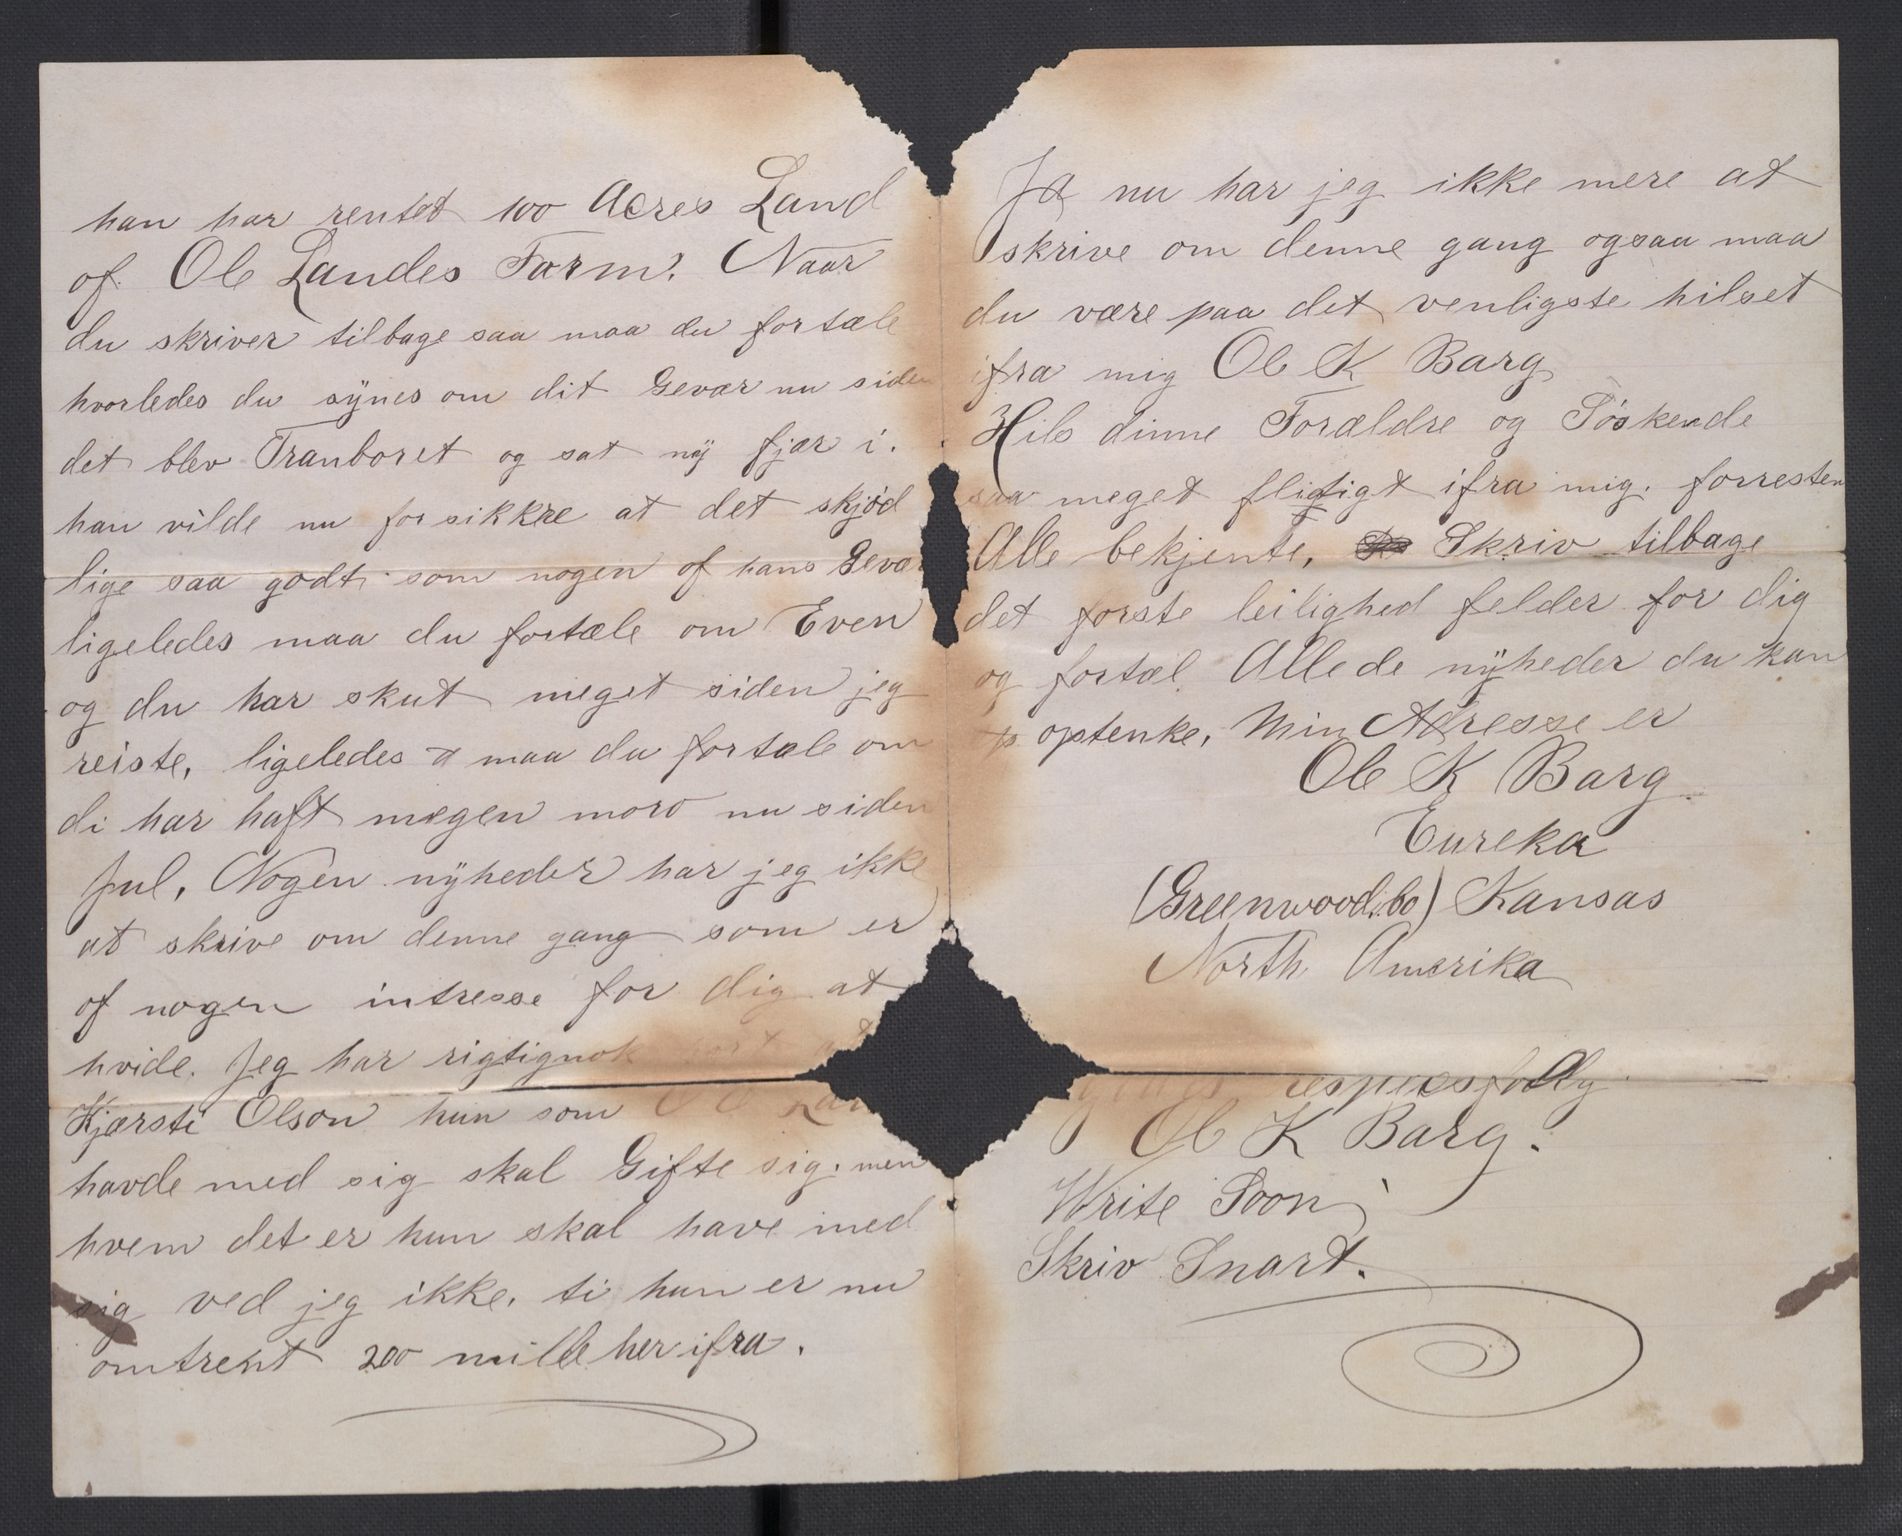 han har rentet 100 Acres Land
of Ole Landes Farm. Naar
du skriver tilbage saa maa du fortæle
hvorledes du synes om dit Gevær nu siden
det blev Tranboret og sat ny fjær i.
han vilde nu forsikkre at det skjød
lige saa godt som nogen of hans Gevær
ligeledes maa du fortæle om Even
og du har skut meget siden jeg
reiste, ligeledes maa du fortæle om
di har haft megen moro nu siden
Jul, Nogen nyheder har jeg ikke
at skrive om denne gang som er
of nogen intresse for dig at
hvide. Jeg har rigtignok hørt at
Kjærsti Olson hun som Ole Lan
havde med sig skal Gifte sig. men
hvem det er hun skal have med
sig ved jeg ikke, ti hun er nu
omtrent 200 mille her ifra.
Ja nu har jeg ikke mere at
skrive om denne gang ogsaa maa
du være paa det venligste hilset
ifra mig Ole K Barg
Hils dinne Forældre og Søskende
saa meget flidigt ifra mig. forresten
Alle bekjente, Skriv tilbage
det forste leilighed felder for dig
og fortæl Alle de nyheder du kan
optenke, Min Adresse er
Ole K Barg
Eureka
(Greenwood Co) Kansas
North Amerika
respecsfully
Ole K Barg.
Write Soon
Skriv Snart.